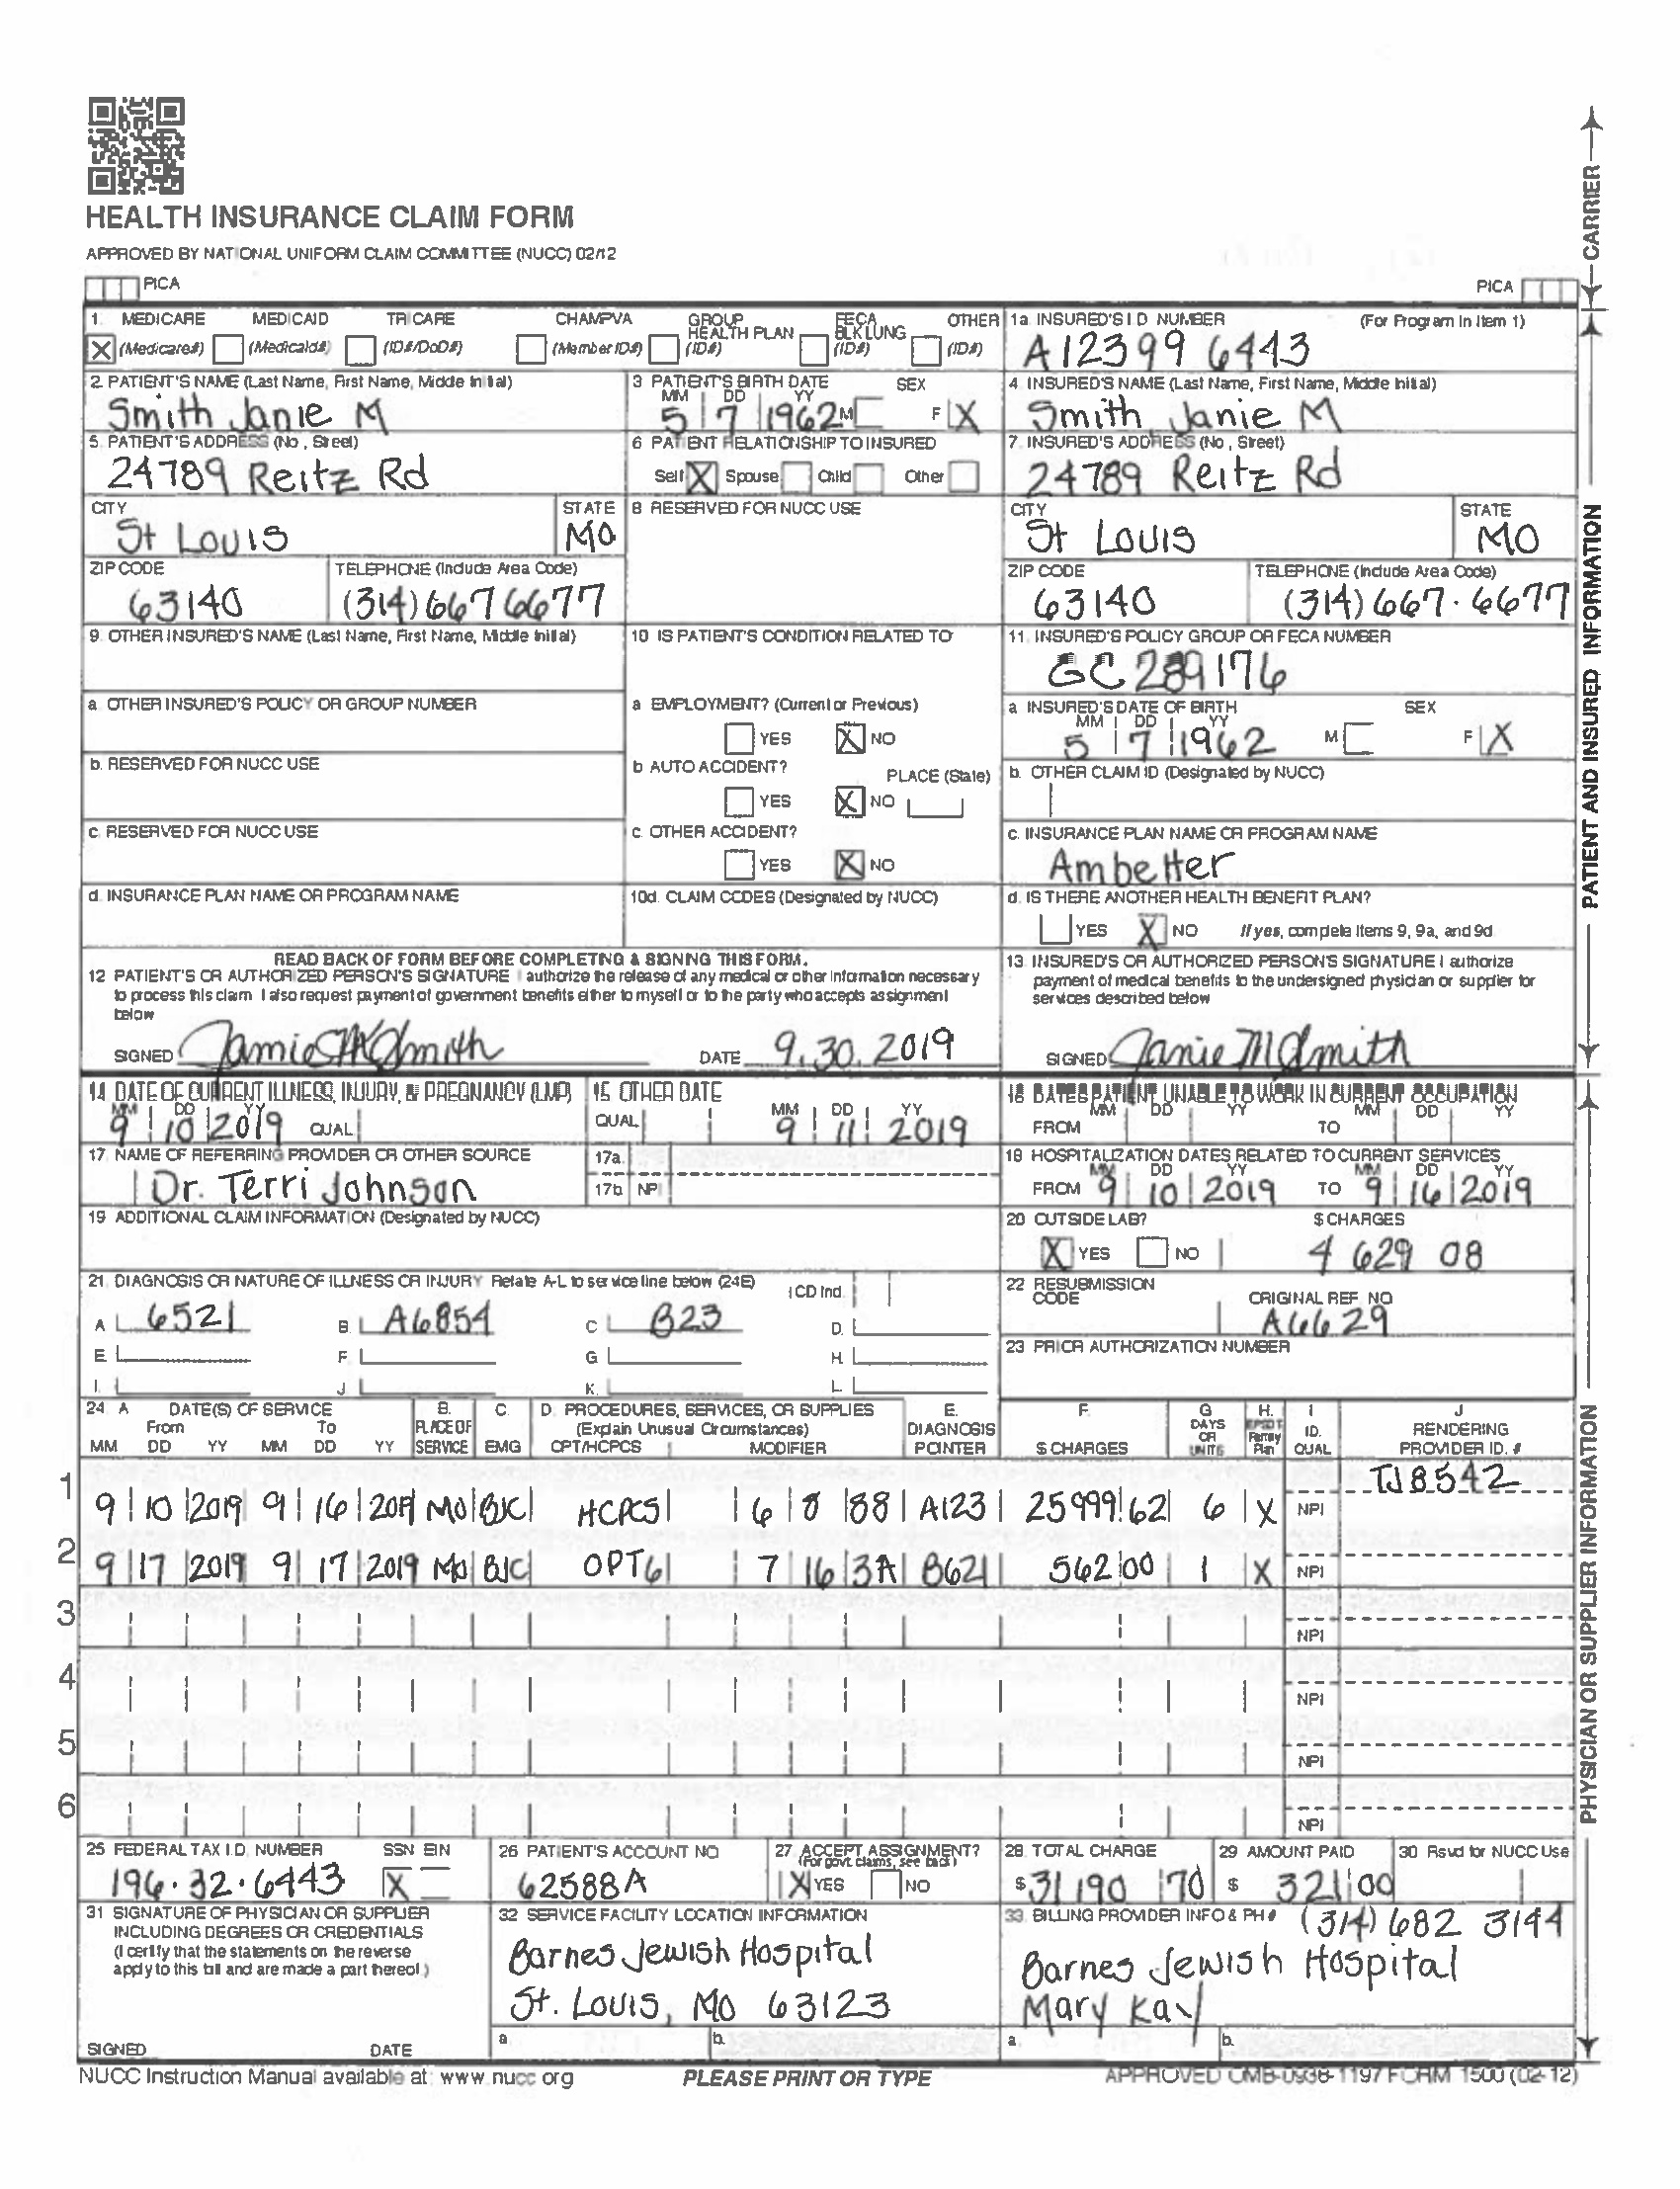 HEALTH INSURANCE CLAIM FORM
APPROVED BY NATIONAL UNIFORM CLAIM COMMITTEE (NUCC) 02/12
PICA PICA
CARRIER
1. MEDICARE MEDICAID TRICARE CHAMPVA GROUP HEALTH PLAN FECA BLK LUNG OTHER
X (Medicare#) (Medicaid#) (ID#/DoD#) (Member ID#) (ID#) (ID#) (ID#)
1a. INSURED'S I.D. NUMBER (For Program in Item 1)
A12399 6443
2. PATIENT'S NAME (Last Name, First Name, Middle Initial)
Smith Janie M
3. PATIENT'S BIRTH DATE SEX
MM DD YY
5 7 1962 M F X
4. INSURED'S NAME (Last Name, First Name, Middle Initial)
Smith Janie M
5. PATIENT'S ADDRESS (No., Street)
24789 Reitz Rd
6. PATIENT RELATIONSHIP TO INSURED
Self X Spouse Child Other
7. INSURED'S ADDRESS (No., Street)
24789 Reitz Rd
CITY STATE
St Louis MO
8. RESERVED FOR NUCC USE
CITY STATE
St Louis MO
ZIP CODE TELEPHONE (Include Area Code)
63140 (314) 667 6677
ZIP CODE TELEPHONE (Include Area Code)
63140 (314) 667.6677
9. OTHER INSURED'S NAME (Last Name, First Name, Middle Initial)
10. IS PATIENT'S CONDITION RELATED TO
11. INSURED'S POLICY GROUP OR FECA NUMBER
GC 289176
a. OTHER INSURED'S POLICY OR GROUP NUMBER
a. EMPLOYMENT? (Current or Previous)
YES X NO
a. INSURED'S DATE OF BIRTH SEX
MM DD YY
5 7 1962 M F X
b. RESERVED FOR NUCC USE
b. AUTO ACCIDENT? PLACE (State)
YES X NO
b. OTHER CLAIM ID (Designated by NUCC)
c. RESERVED FOR NUCC USE
c. OTHER ACCIDENT?
YES X NO
c. INSURANCE PLAN NAME OR PROGRAM NAME
Ambetter
d. INSURANCE PLAN NAME OR PROGRAM NAME
10d. CLAIM CODES (Designated by NUCC)
d. IS THERE ANOTHER HEALTH BENEFIT PLAN?
YES X NO If yes, complete items 9, 9a, and 9d
PATIENT AND INSURED INFORMATION
READ BACK OF FORM BEFORE COMPLETING & SIGNING THIS FORM.
12. PATIENT'S OR AUTHORIZED PERSON'S SIGNATURE I authorize the release of any medical or other information necessary
to process this claim. I also request payment of government benefits either to myself or to the party who accepts assignment
below
SIGNED Jamie M Smith DATE 9.30.2019
13. INSURED'S OR AUTHORIZED PERSON'S SIGNATURE I authorize
payment of medical benefits to the undersigned physician or supplier for
services described below
SIGNED Janie M Smith
14. DATE OF CURRENT ILLNESS, INJURY, or PREGNANCY (LMP)
MM DD YY
9 10 2019 QUAL
15. OTHER DATE
QUAL MM DD YY
9 11 2019
16. DATES PATIENT UNABLE TO WORK IN CURRENT OCCUPATION
MM DD YY MM DD YY
FROM TO
17. NAME OF REFERRING PROVIDER OR OTHER SOURCE
Dr. Terri Johnson
17a.
17b. NPI
18. HOSPITALIZATION DATES RELATED TO CURRENT SERVICES
MM DD YY MM DD YY
FROM 9 10 2019 TO 9 16 2019
19. ADDITIONAL CLAIM INFORMATION (Designated by NUCC)
20. OUTSIDE LAB? $ CHARGES
X YES NO 4 629 08
21. DIAGNOSIS OR NATURE OF ILLNESS OR INJURY Relate A-L to service line below (24E) ICD Ind.
A. 6521 B. A6854 C. B23 D.
E. F. G. H.
I. J. K. L.
22. RESUBMISSION CODE ORIGINAL REF. NO.
A6629
23. PRIOR AUTHORIZATION NUMBER
24. A. DATE(S) OF SERVICE B. C. D. PROCEDURES, SERVICES, OR SUPPLIES E. F. G. H. I. J.
From To PLACE OF (Explain Unusual Circumstances) DIAGNOSIS DAYS OR UNITS EPSDT Family Plan ID. RENDERING
MM DD YY MM DD YY SERVICE EMG CPT/HCPCS MODIFIER POINTER $ CHARGES QUAL. PROVIDER ID. #
TJ8542
1 9 10 2019 9 16 2019 MO BJC HCPCS 6 8 88 A123 25999 62 6 X NPI
2 9 17 2019 9 17 2019 MO BJC OPT6 7 16 3A B621 562 00 1 X NPI
3 NPI
4 NPI
5 NPI
6 NPI
25. FEDERAL TAX I.D. NUMBER SSN EIN
196.32.6443 X
26. PATIENT'S ACCOUNT NO.
62588A
27. ACCEPT ASSIGNMENT?
(For govt. claims, see back)
X YES NO
28. TOTAL CHARGE
$ 31190 70
29. AMOUNT PAID
$ 321 00
30. Rsvd for NUCC Use
31. SIGNATURE OF PHYSICIAN OR SUPPLIER
INCLUDING DEGREES OR CREDENTIALS
(I certify that the statements on the reverse
apply to this bill and are made a part thereof.)
SIGNED DATE
32. SERVICE FACILITY LOCATION INFORMATION
Barnes Jewish Hospital
St. Louis, MO 63123
a. b.
33. BILLING PROVIDER INFO & PH # (314) 682 3144
Barnes Jewish Hospital
Mary Kay
a. b.
PHYSICIAN OR SUPPLIER INFORMATION
NUCC Instruction Manual available at: www.nucc.org
PLEASE PRINT OR TYPE
APPROVED OMB-0938-1197 FORM 1500 (02-12)